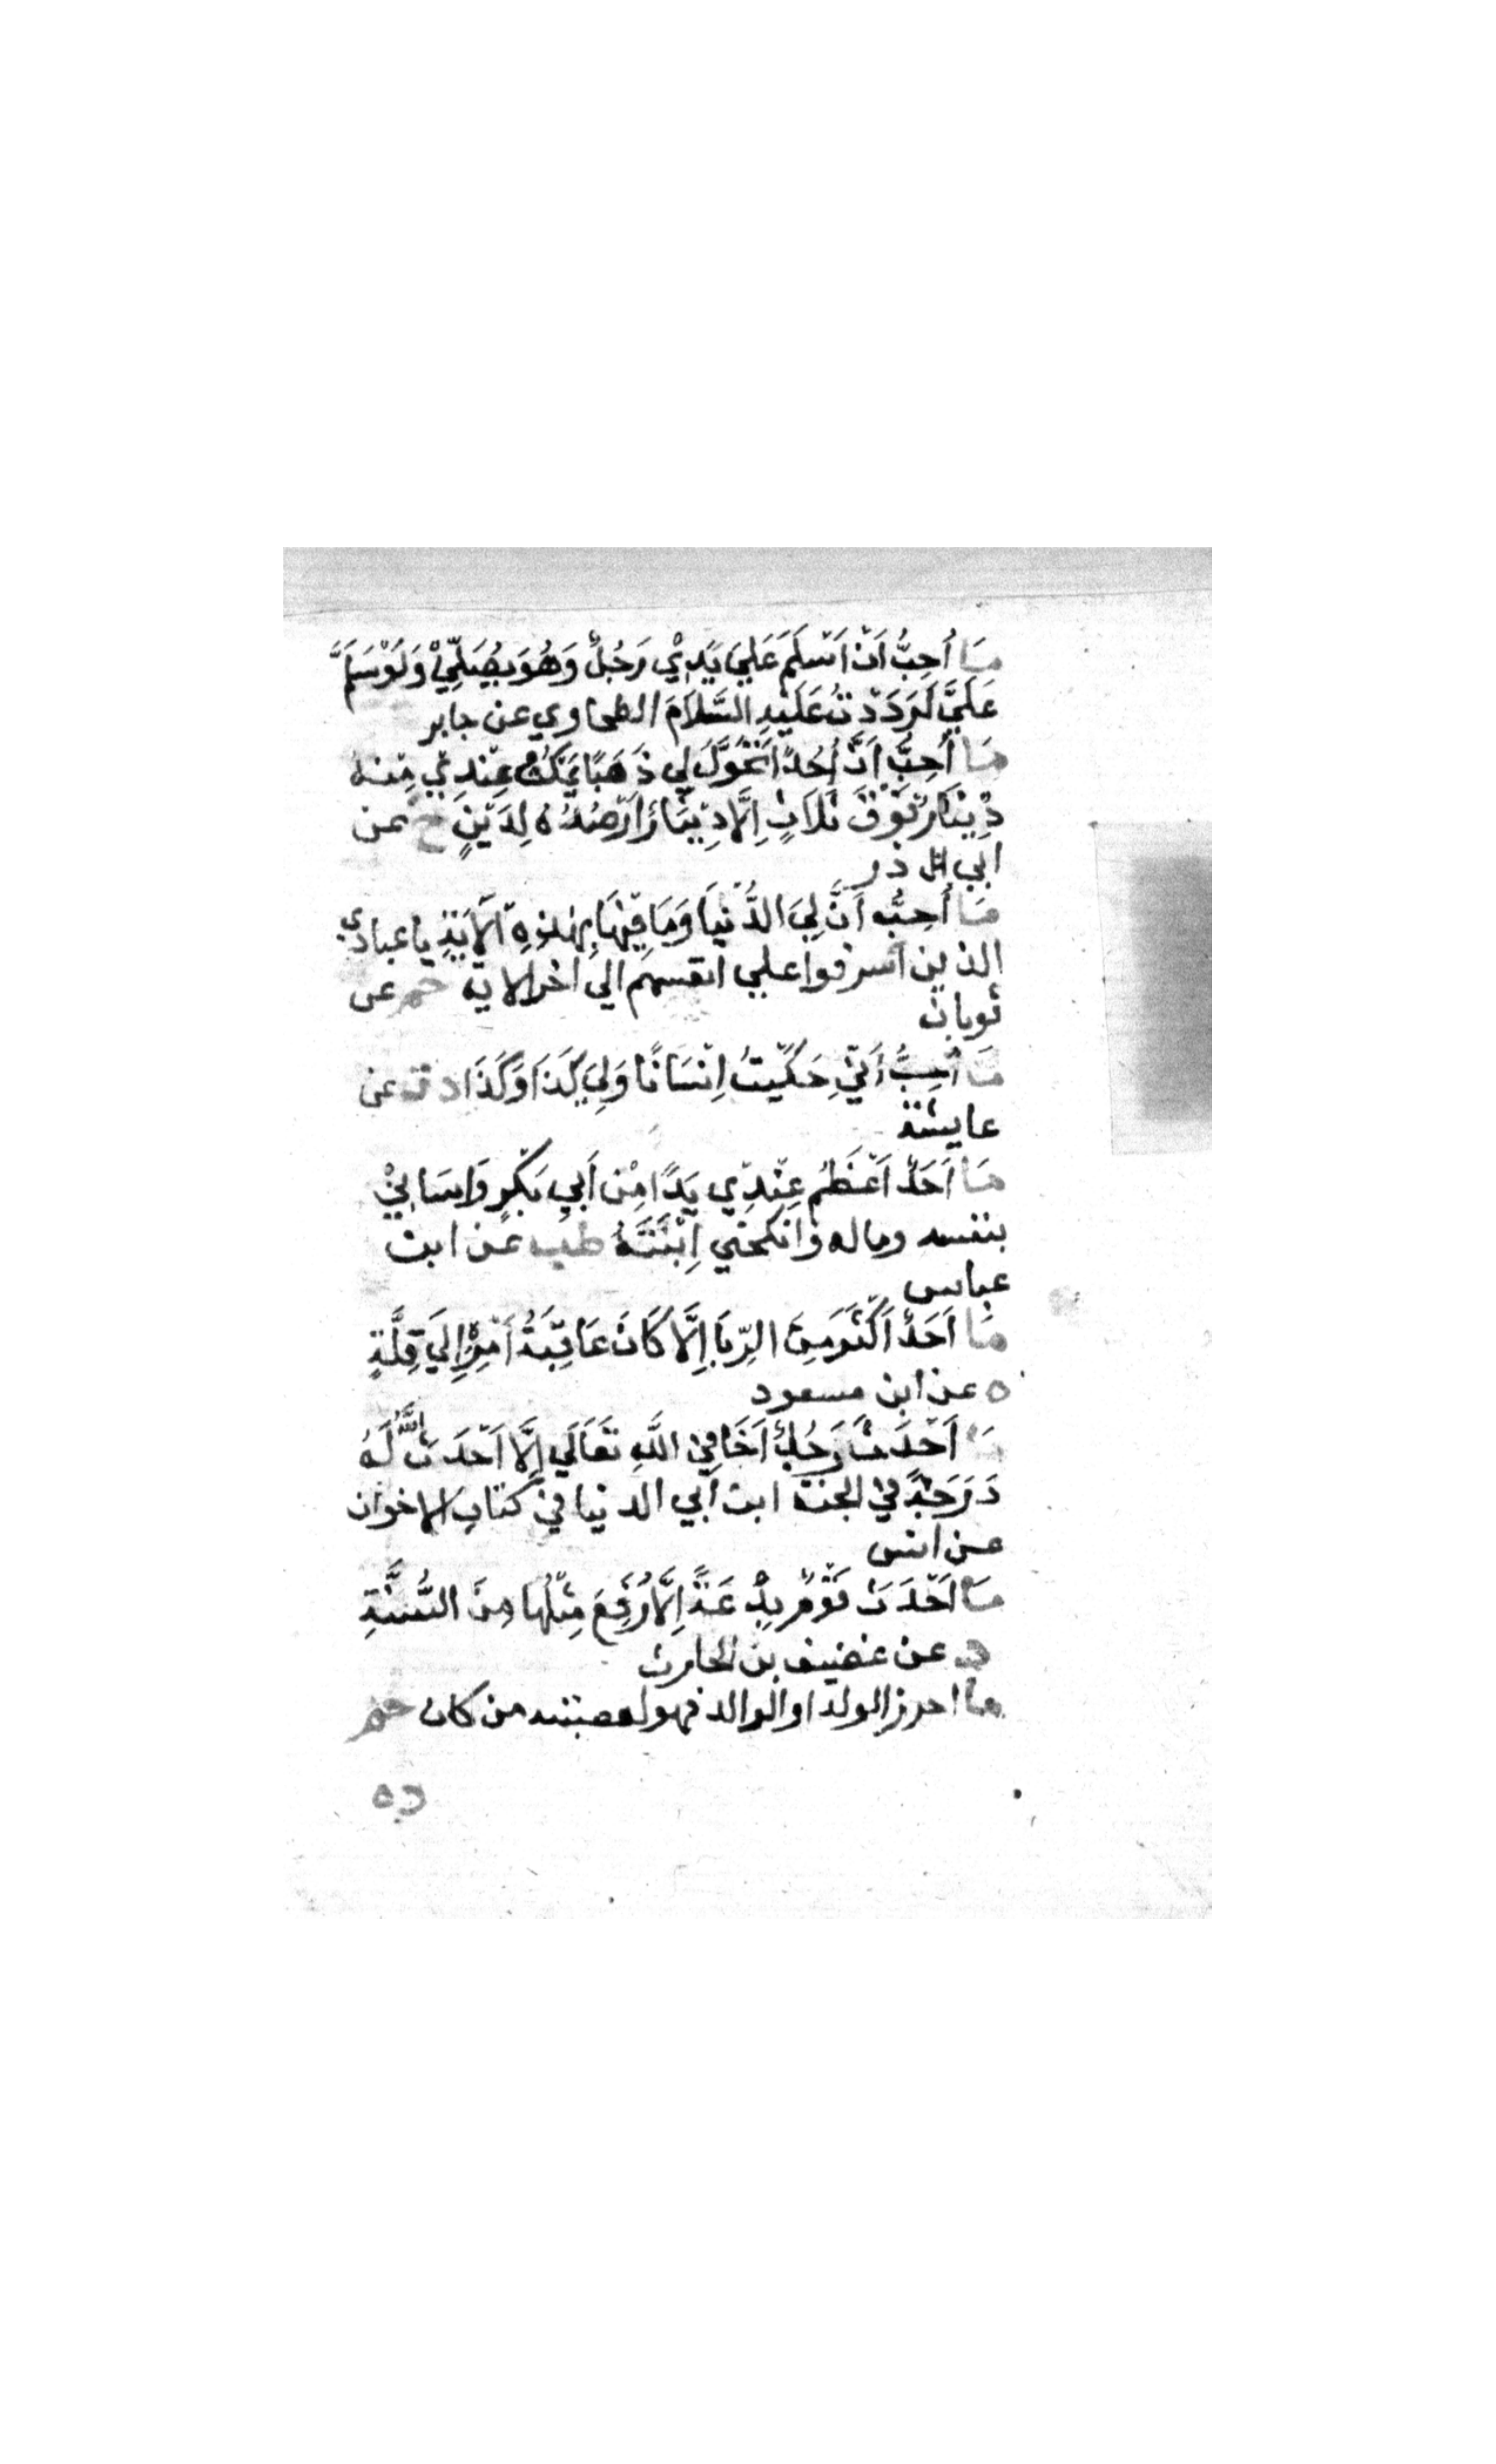 مَا أُحِبُّ اَنْ اُسَلِّمَ عَلَيَ يَدِيْ رَجُلٌ وَهُوَ يُصَلِّيْ وَلَوْ سَلَّمَ
عَلَيَّ لَرَدَدْتُ عَلَيْهِ السَّلاَمَ الطحاوي عن جابر
مَا أُحِبُّ اَنَّ اُحُدًا تَحَوَّلَ لِي ذَهَبًا يَمْكُثُ عِنْدِيْ مِنْهُ
دِيْنَارٌ فَوْقَ ثَلاَثٍ اِلَّا دِيْنَارٌ اَرْصُدُهُ لِدَيْنٍ خ عن
ابي ذر
مَا أُحِبُّ اَنَّ لِيَ الدُّنْيَا وَمَا فِيْهَا بِهٰذِهِ الْاَيَةِ يا عبادي
الذين اسرفوا علي انفسهم الي اخر الاية حم عن
ثوبان
مَا اُحِبُّ اَنِّي حَكَيْتُ اِنْسَانًا وَلِيَ كَذَا وَكَذَا د ت عن
عايشة
مَا اَحَدٌ اَعْظَمُ عِنْدِي يَدًا مِنْ اَبِي بَكْرٍ وَاسَانِيْ
بنفسه وماله وانكحني اِبْنَتَهُ طب عن ابن
عباس
مَا اَحَدٌ اَكْثَرَ مِنَ الرِّبَا اِلَّا كَانَ عَاقِبَةُ اَمْرِهِ اِلَي قِلَّةٍ
ه عن ابن مسعود
مَا اَحْدَثَ رَجُلٌ اَخًا فِيْ اللَّهِ تَعَالَي اِلَّا اَحْدَثَ اللَّهُ لَهُ
دَرَجَةً فِيْ الجنة ابن ابي الدنيا في كتاب الاخوان
عن انس
مَا اَحْدَثَ قَوْمٌ بِدْعَةً اِلَّا رُفِعَ مِثْلُهَا مِنَ السُّنَّةِ
حم عن غضيف بن الحارث
ما احرز الولد او الوالد فهو لعصبته من كان حم
د ه